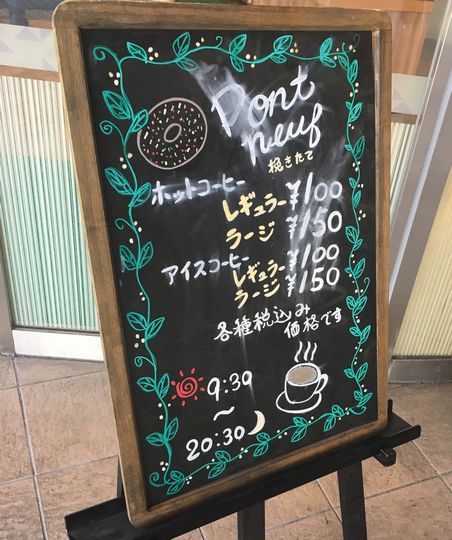 Pont
neuf
挽きたて
ホットコーヒー
レギュラー ¥100
ラージ ¥150
アイスコーヒー
レギュラー ¥100
ラージ ¥150
各種税込み
価格です
9:30
〜
20:30